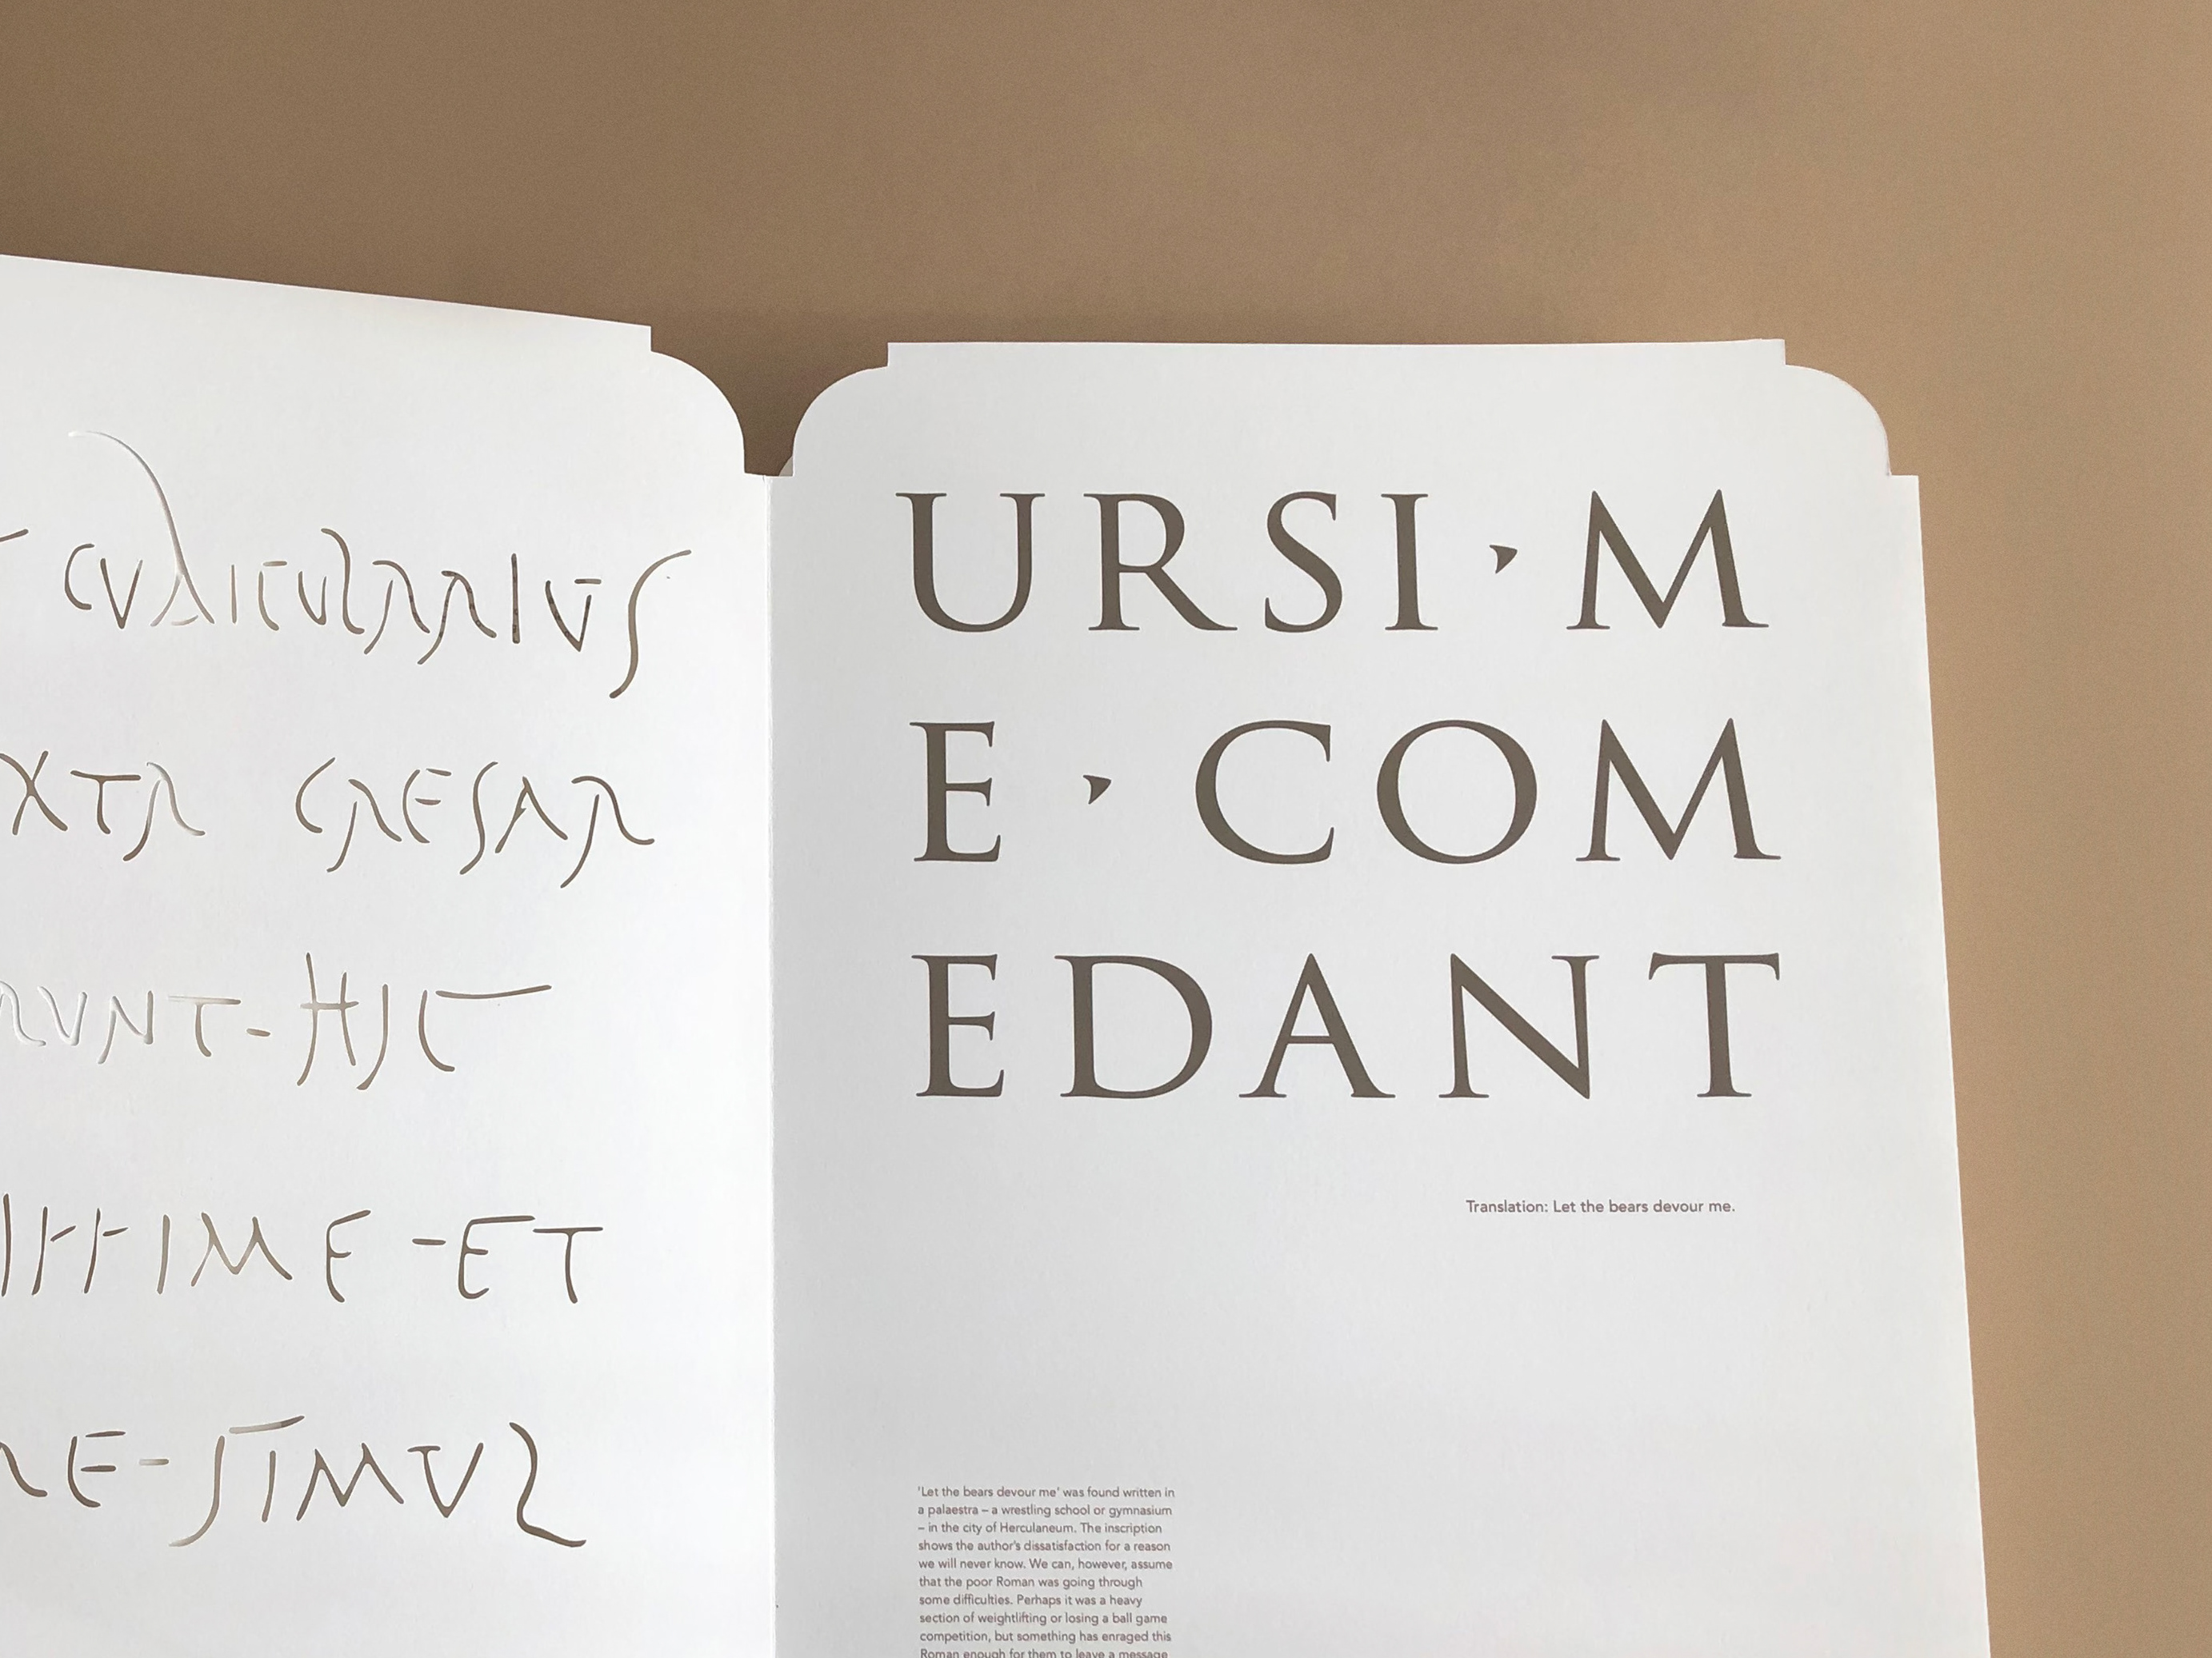 CUBICULARIUS
XTA CAESAR
RUNT-HIC
ISSIME-ET
RE-SIMUL
URSI·M
E·COM
EDANT
Translation: Let the bears devour me.
'Let the bears devour me' was found written in
a palaestra – a wrestling school or gymnasium
– in the city of Herculaneum. The inscription
shows the author's dissatisfaction for a reason
we will never know. We can, however, assume
that the poor Roman was going through
some difficulties. Perhaps it was a heavy
section of weightlifting or losing a ball game
competition, but something has enraged this
Roman enough for them to leave a message